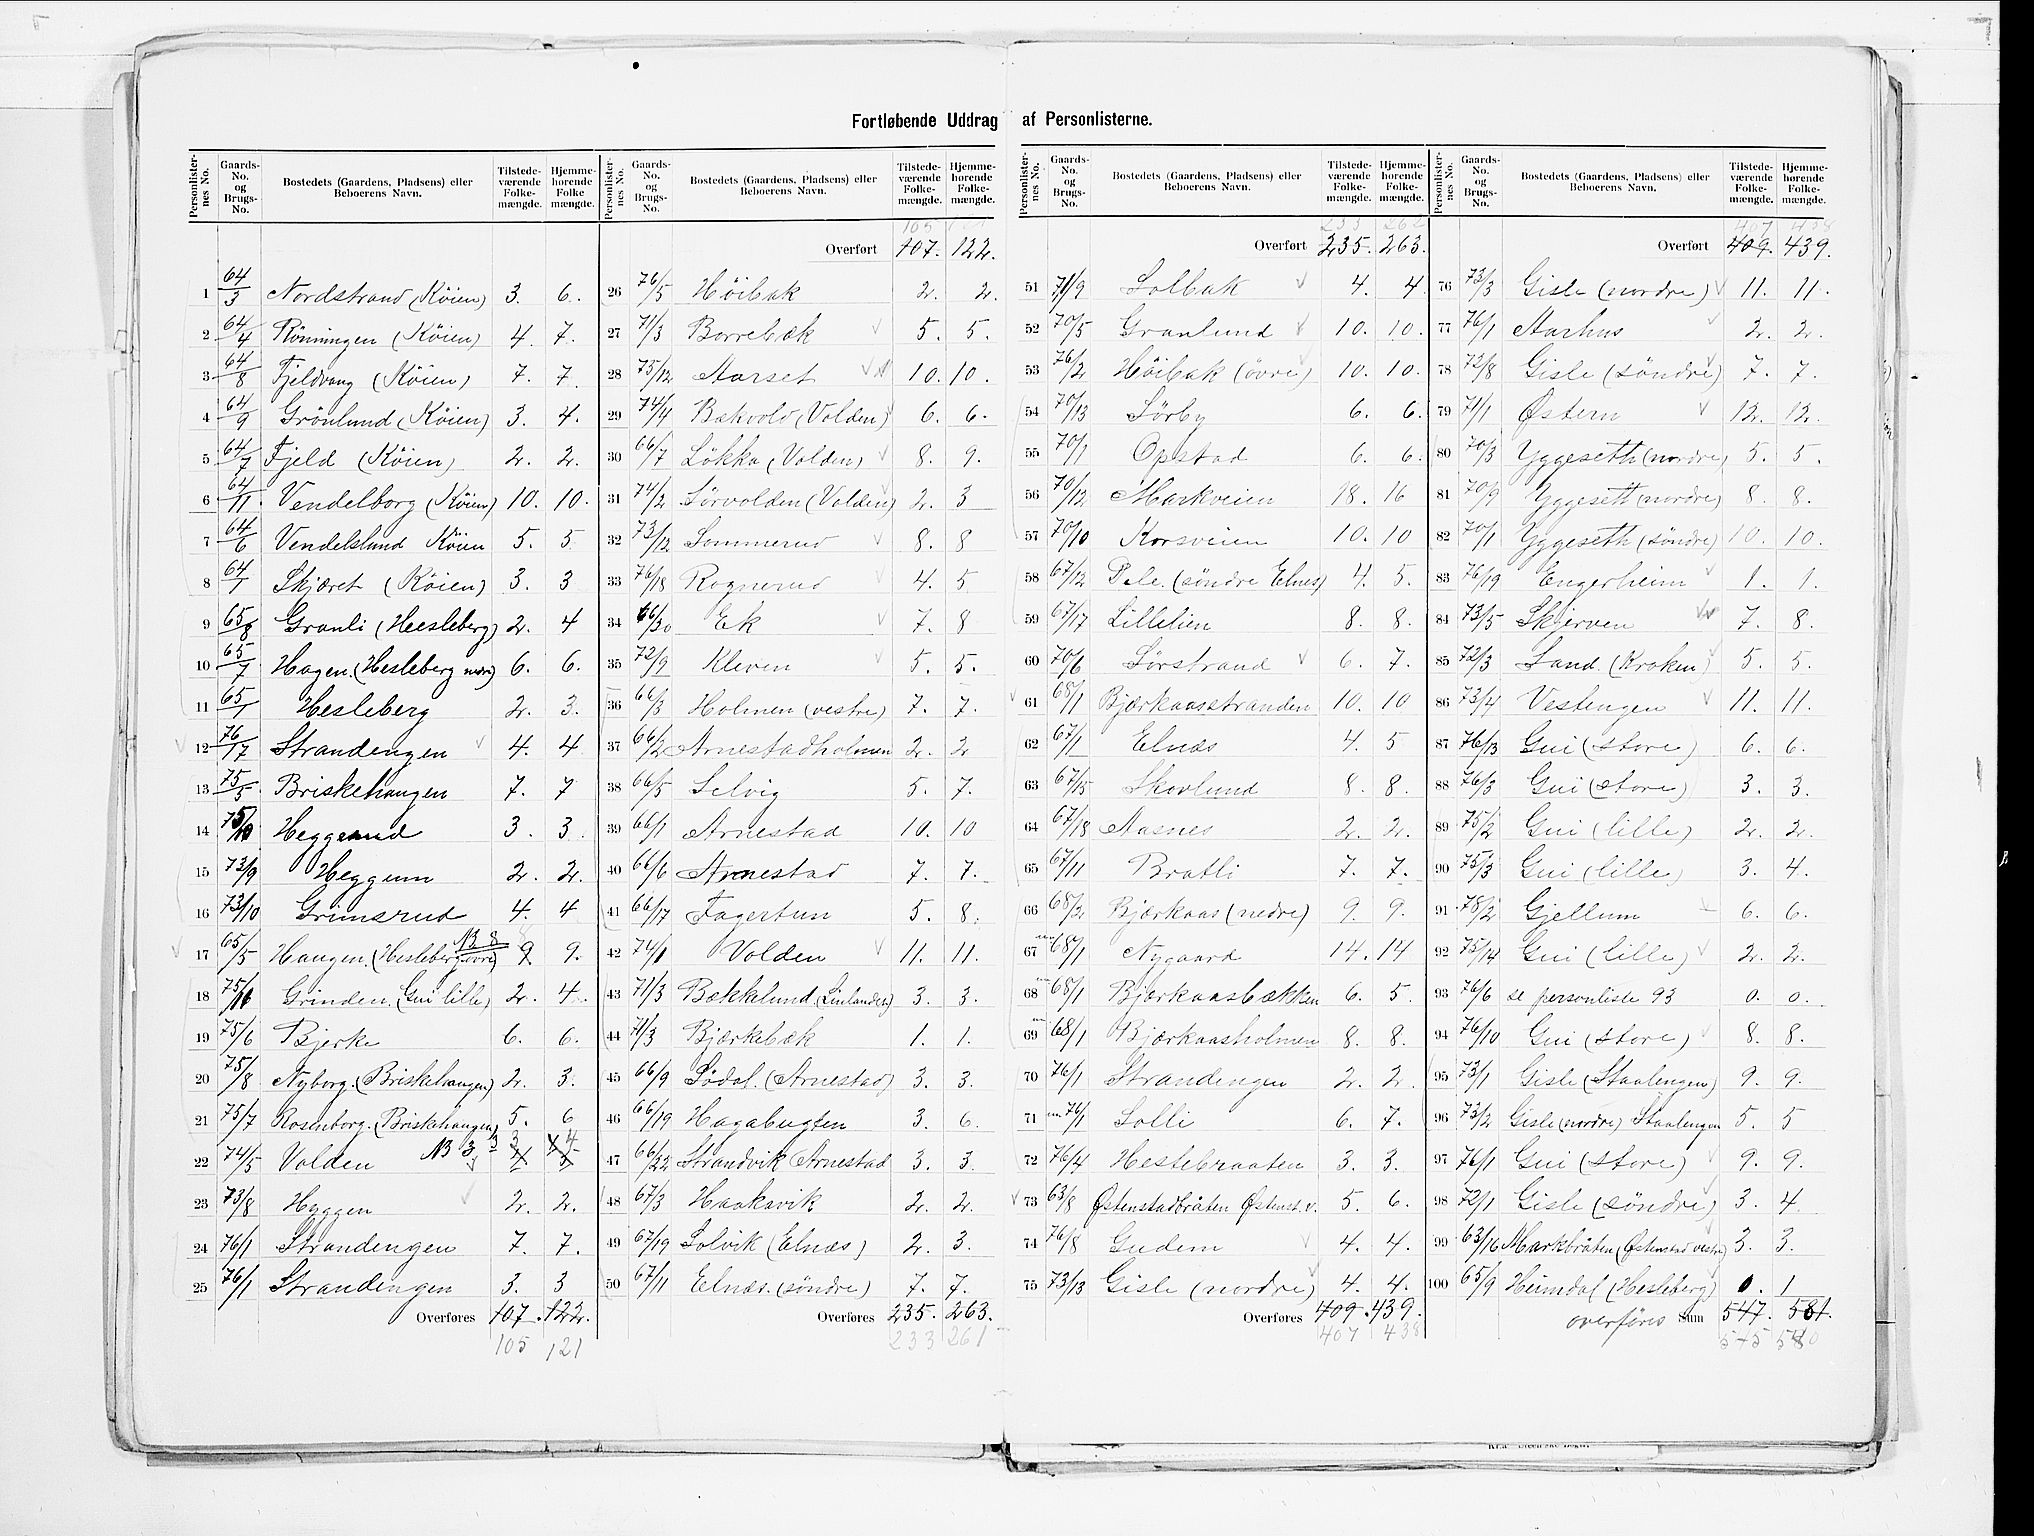 Fortløbende Uddrag af Personlisterne.
Personlisternes No. Gaards-No. og Brugs-No. Bostedets (Gaardens, Pladsens) eller Beboerens Navn. Tilstedeværende Folkemængde. Hjemmehorende Folkemængde.
1 64/3 Nordstrand (Köien) 3. 6.
2 64/4 Rönningen (Köien) 4. 7.
3 64/8 Fjeldvang (Köien) 7. 7.
4 64/9 Grönlund (Köien) 3. 4.
5 64/7 Fjeld (Köien) 2. 2.
6 64/11 Vendelborg (Köien) 10. 10.
7 64/6 Vendelslund Köien 5. 5
8 64/1 Skjæret (Köien) 3. 3
9 65/8 Granli (Heesleberg) 2. 4
10 65/7 Hagen. (Hesleberg nor) 6. 6.
11 65/1 Hesleberg 2. 3.
12 76/17 Strandengen 4. 4.
13 75/5 Briskehaugen 7. 7
14 75/10 Heggerud 3. 3.
15 73/9 Heggum 2. 2.
16 73/10 Grimsrud 4. 4
17 65/5 Haugen. (Hesleberg övre) NB 8 9. 9.
18 75/11 Grinden. (Gui lille) 2. 4.
19 75/6 Bjerke 6. 6.
20 75/8 Nyborg. (Briskehaugen) 2. 3.
21 75/7 Rosenborg. (Briskehaugen) 5. 6
22 74/5 Volden NB 3 3 4
23 73/8 Hyggen 2. 2.
24 76/1 Strandengen 7. 7.
25 76/1 Strandengen 3. 3
Overføres 107. 122.
105 121
Personlisternes No. Gaards-No. og Brugs-No. Bostedets (Gaardens, Pladsens) eller Beboerens Navn. Tilstedeværende Folkemængde. Hjemmehorende Folkemængde.
105
Overført 107. 122.
26 76/5 Höibak 2. 2.
27 71/3 Borrebæk 5. 5.
28 75/12 Aarset 10. 10.
29 74/4 Bakvold (Volden) 6. 6.
30 66/7 Lökka (Volden) 8. 9.
31 74/2 Sörvolden (Volden) 2. 3
32 73/12 Sommerud 8. 8
33 76/18 Rognerud 4. 5
34 66/30 Ek 7. 8
35 72/9 Kleven 5. 5.
36 66/3 Holmen (vestre) 7. 7.
37 66/2 Arnestadholmen 2. 2
38 66/5 Selvig 5. 7.
39 66/1 Arnestad 10. 10
40 66/6 Arnestad 7. 7.
41 66/17 Fagertun 5. 8.
42 74/1 Volden 11. 11.
43 71/3 Bækkelund (Linlanden) 3. 3.
44 71/3 Bjærkebæk 1. 1.
45 66/9 Södal. (Arnestad) 3. 3.
46 66/19 Hagabugten 3. 6.
47 66/22 Strandvik Arnestad 3. 3.
48 67/3 Haakavik 2. 2.
49 67/19 Solvik (Elnæs) 2. 3.
50 67/11 Elnæs. (söndre) 7. 7.
Overføres 235. 263.
233 261
Personlisternes No. Gaards-No. og Brugs-No. Bostedets (Gaardens, Pladsens) eller Beboerens Navn. Tilstedeværende Folkemængde. Hjemmehorende Folkemængde.
233 262
Overført 235. 263.
51 71/9 Solbak 4. 4
52 70/5 Granlund 10. 10.
53 76/2 Höibak (övre) 10. 10.
54 70/13 Sörby 6. 6.
55 70/1 Opstad 6. 6.
56 70/12 Markveien 18. 16
57 70/10 Korsveien 10. 10
58 67/12 Pele. (söndre Elnes) 4. 5.
59 67/17 Lillelien 8. 8.
60 70/6 Sörstrand 6. 7.
61 68/1 Bjærkaasstranden 10. 10
62 67/1 Elnæs 4. 5
63 67/15 Skovlund 8. 8.
64 67/18 Aasnes 2. 2.
65 67/11 Bratli 7. 7.
66 68/2 Bjærkaas (nedre) 9. 9.
67 68/1 Nygaard 14. 14
68 68/1 Bjærkaasbækken 6. 5.
69 68/1 Bjærkaasholmen 8. 8.
70 76/1 Strandengen 2. 2.
71 76/1 Solli 6. 7.
72 76/4 Hestebraaten 3. 3.
73 63/8 Østenstadbråten Østenst. v. 5. 6.
74 76/8 Gudem 4. 4.
75 73/13 Gisle (nordre) 4. 4.
Overføres 409. 439.
407 438
Personlisternes No. Gaards-No. og Brugs-No. Bostedets (Gaardens, Pladsens) eller Beboerens Navn. Tilstedeværende Folkemængde. Hjemmehorende Folkemængde.
407 438
Overført 409. 439.
76 73/3 Gisle (nordre) 11. 11.
77 76/1 Aarhus 2. 2.
78 72/8 Gisle (söndre) 7. 7.
79 71/1 Østern 12. 12.
80 70/3 Yggeseth (nordre) 5. 5.
81 70/9 Yggesett (nordre) 8. 8.
82 70/1 Yggeseth (söndre) 10. 10.
83 76/19 Engerheim 1. 1.
84 73/5 Skjerven 7. 8.
85 72/3 Land. (Kroken) 5. 5.
86 73/4 Vestengen 11. 11.
87 76/13 Gui (store) 6. 6.
88 76/3 Gui (store) 3. 3.
89 75/2 Gui (lille) 2. 2.
90 75/3 Gui (lille) 3. 4.
91 78/2 Gjellum 6. 6.
92 75/14 Gui (lille) 2. 2.
93 76/6 se personliste 93 0. 0.
94 76/10 Gui (store) 8. 8.
95 73/1 Gisle (Staalengen) 9. 9.
96 73/2 Gisle (nordre) Staalengen 5. 5
97 76/1 Gui (store) 9. 9.
98 72/1 Gisle (söndre) 3. 4.
99 63/16 Markbråten (Østenstad vestre) 3. 3.
100 65/9 Heimdal (Hesleberg) 0. 1
overföres Sum 547. 581.
545 580